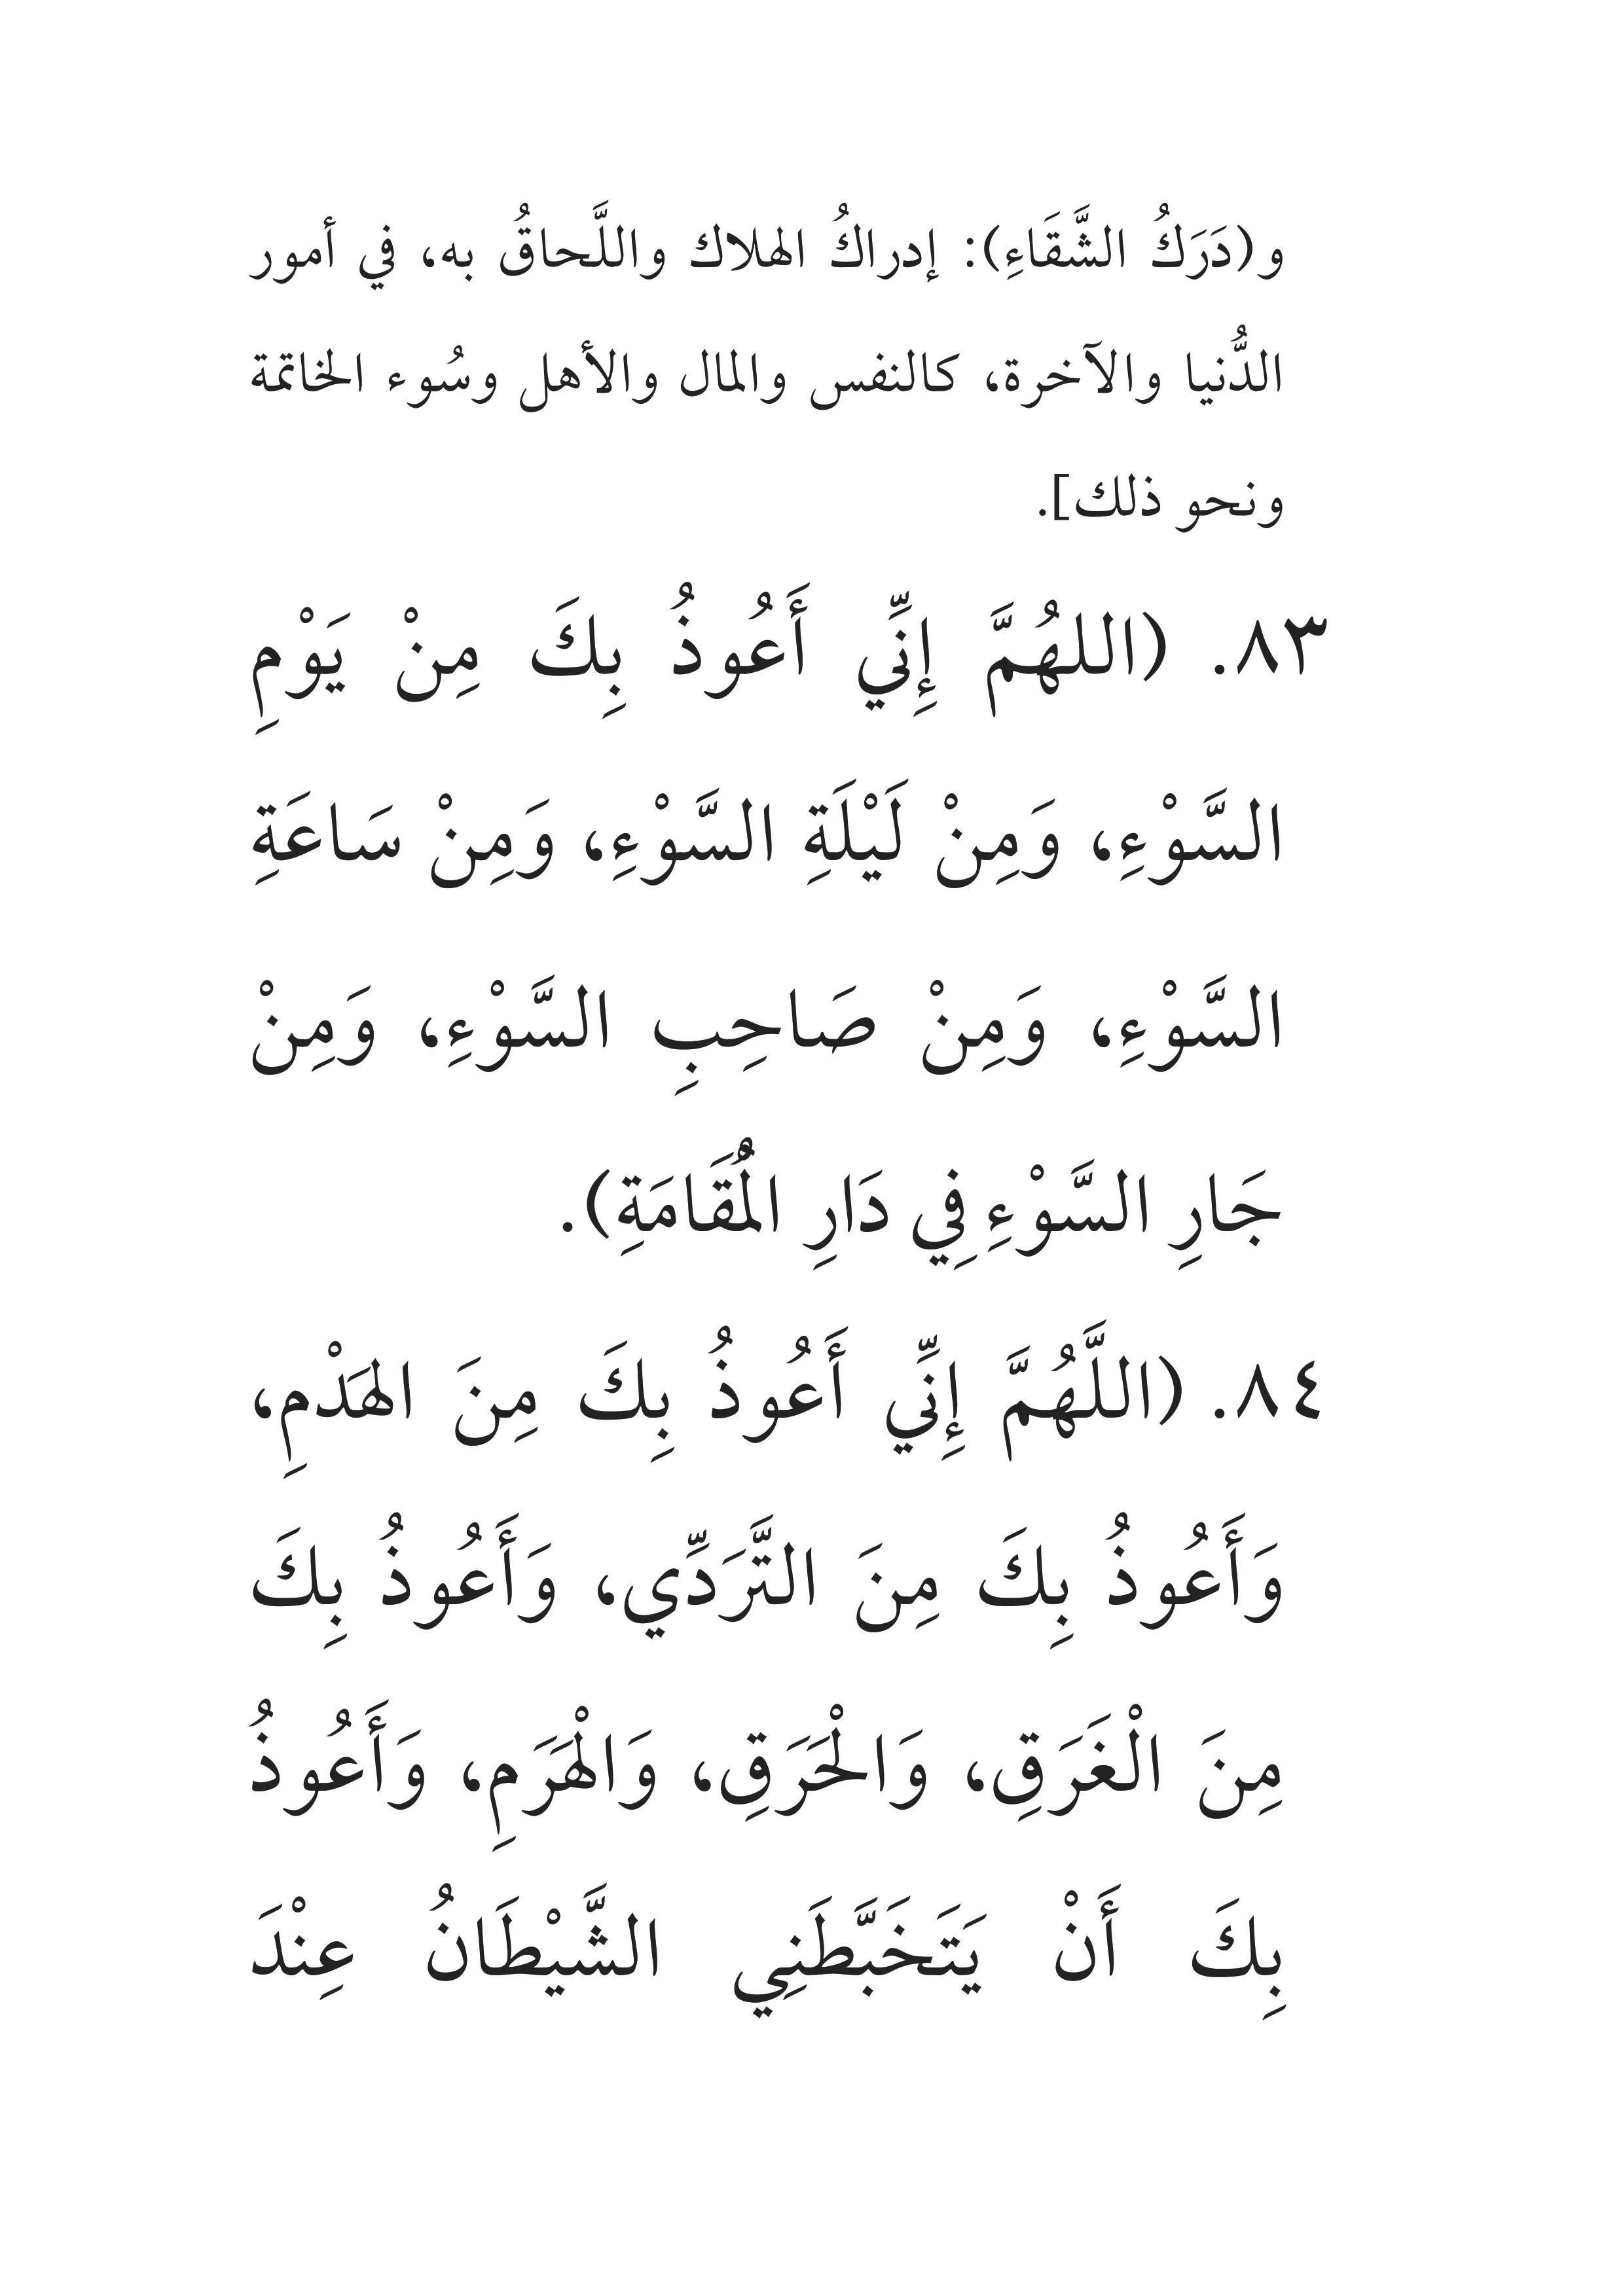 و(دَرَكُ الشَّقَاءِ): إدراكُ الهلاك واللَّحاقُ به، في أمور
الدُّنيا والآخرة، كالنفس والمال والأهل وسُوء الخاتمة
ونحو ذلك].
٨٣. (اللهُمَّ إِنِّي أَعُوذُ بِكَ مِنْ يَوْمِ
السَّوْءِ، وَمِنْ لَيْلَةِ السَّوْءِ، وَمِنْ سَاعَةِ
السَّوْءِ، وَمِنْ صَاحِبِ السَّوْءِ، وَمِنْ
جَارِ السَّوْءِ فِي دَارِ الْمُقَامَةِ).
٨٤. (اللَّهُمَّ إِنِّي أَعُوذُ بِكَ مِنَ الهَدْمِ،
وَأَعُوذُ بِكَ مِنَ التَّرَدِّي، وَأَعُوذُ بِكَ
مِنَ الْغَرَقِ، وَالْحَرَقِ، وَالْهَرَمِ، وَأَعُوذُ
بِكَ أَنْ يَتَخَبَّطَنِي الشَّيْطَانُ عِنْدَ